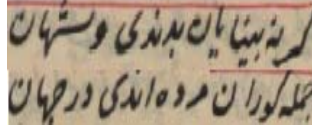 گر نه بینایان بدندی و شهان
جمله کوران مرده اندی در جهان